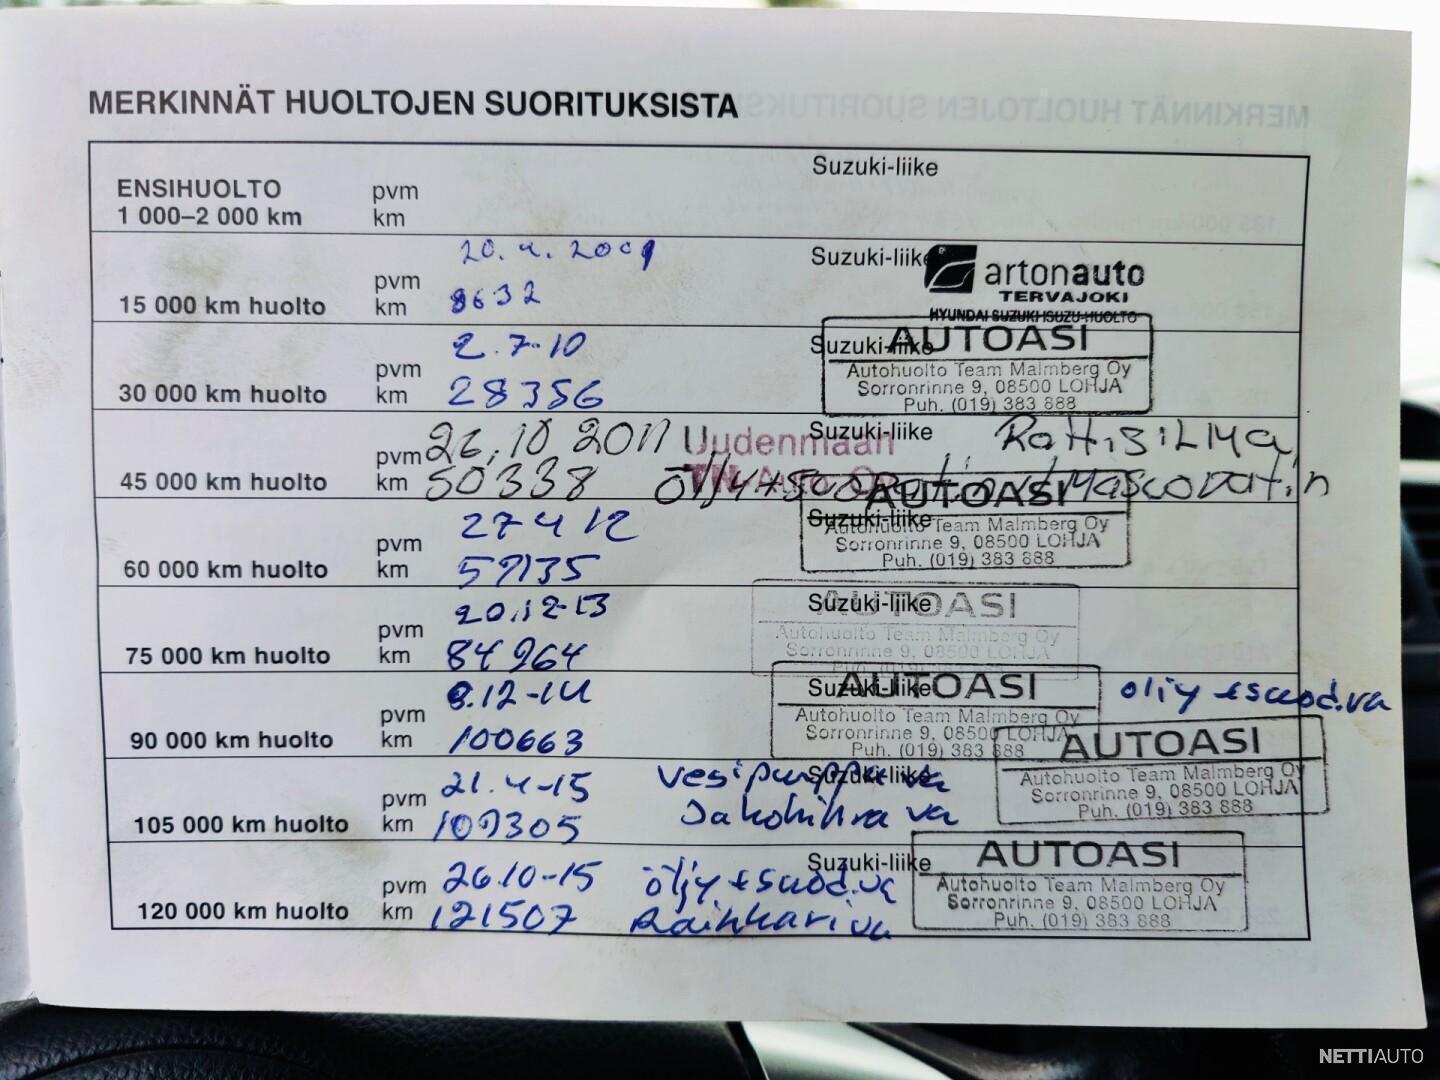 MERKINNÄT HUOLTOJEN SUORITUKSISTA
Suzuki-liike
ENSIHUOLTO pvm
1 000–2 000 km km
20.4.2009
Suzuki-liike
artonauto
TERVAJOKI
HYUNDAI SUZUKI ISUZU-HUOLTO
pvm
15 000 km huolto km 8632
2.7-10
Suzuki-liike
AUTOASI
Autohuolto Team Malmberg Oy
Sorronrinne 9, 08500 LOHJA
Puh. (019) 383 888
pvm
30 000 km huolto km 28356
pvm 26.10 2011
Uudenmaan
Suzuki-liike
45 000 km huolto km 50338
TN-Auto Oy
27 4 12
AUTOASI
Suzuki-liike
Autohuolto Team Malmberg Oy
Sorronrinne 9, 08500 LOHJA
Puh. (019) 383 888
pvm
60 000 km huolto km 57135
20.12-13
Suzuki-liike
AUTOASI
Autohuolto Team Malmberg Oy
Sorronrinne 9, 08500 LOHJA
Puh. (019) 383 888
pvm
75 000 km huolto km 84964
8.12-14
Suzuki-liike
AUTOASI
Autohuolto Team Malmberg Oy
Sorronrinne 9, 08500 LOHJA
Puh. (019) 383 888
öljy + suod.va
pvm
90 000 km huolto km 100663
21.4-15 vesipumppu va
Suzuki-liike
AUTOASI
Autohuolto Team Malmberg Oy
Sorronrinne 9, 08500 LOHJA
Puh. (019) 383 888
pvm
105 000 km huolto km 109305 Jakohihna va
Suzuki-liike
AUTOASI
Autohuolto Team Malmberg Oy
Sorronrinne 9, 08500 LOHJA
Puh. (019) 383 888
pvm 26.10-15 öljy + suod.va
120 000 km huolto km 121507
NETTIAUTO